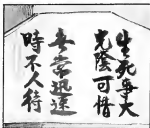 生死事大
光陰可惜
無常迅速
時不人待